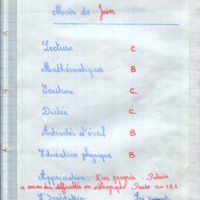 Mois de Juin
Lecture C
Mathématiques B
Ecriture C
Dictée C
Activités d'éveil B
Education physique B
Appréciation. Des progrès. Patrice
a encore des difficultés en orthographe. Passe au CE1
L'Institutrice Les parents